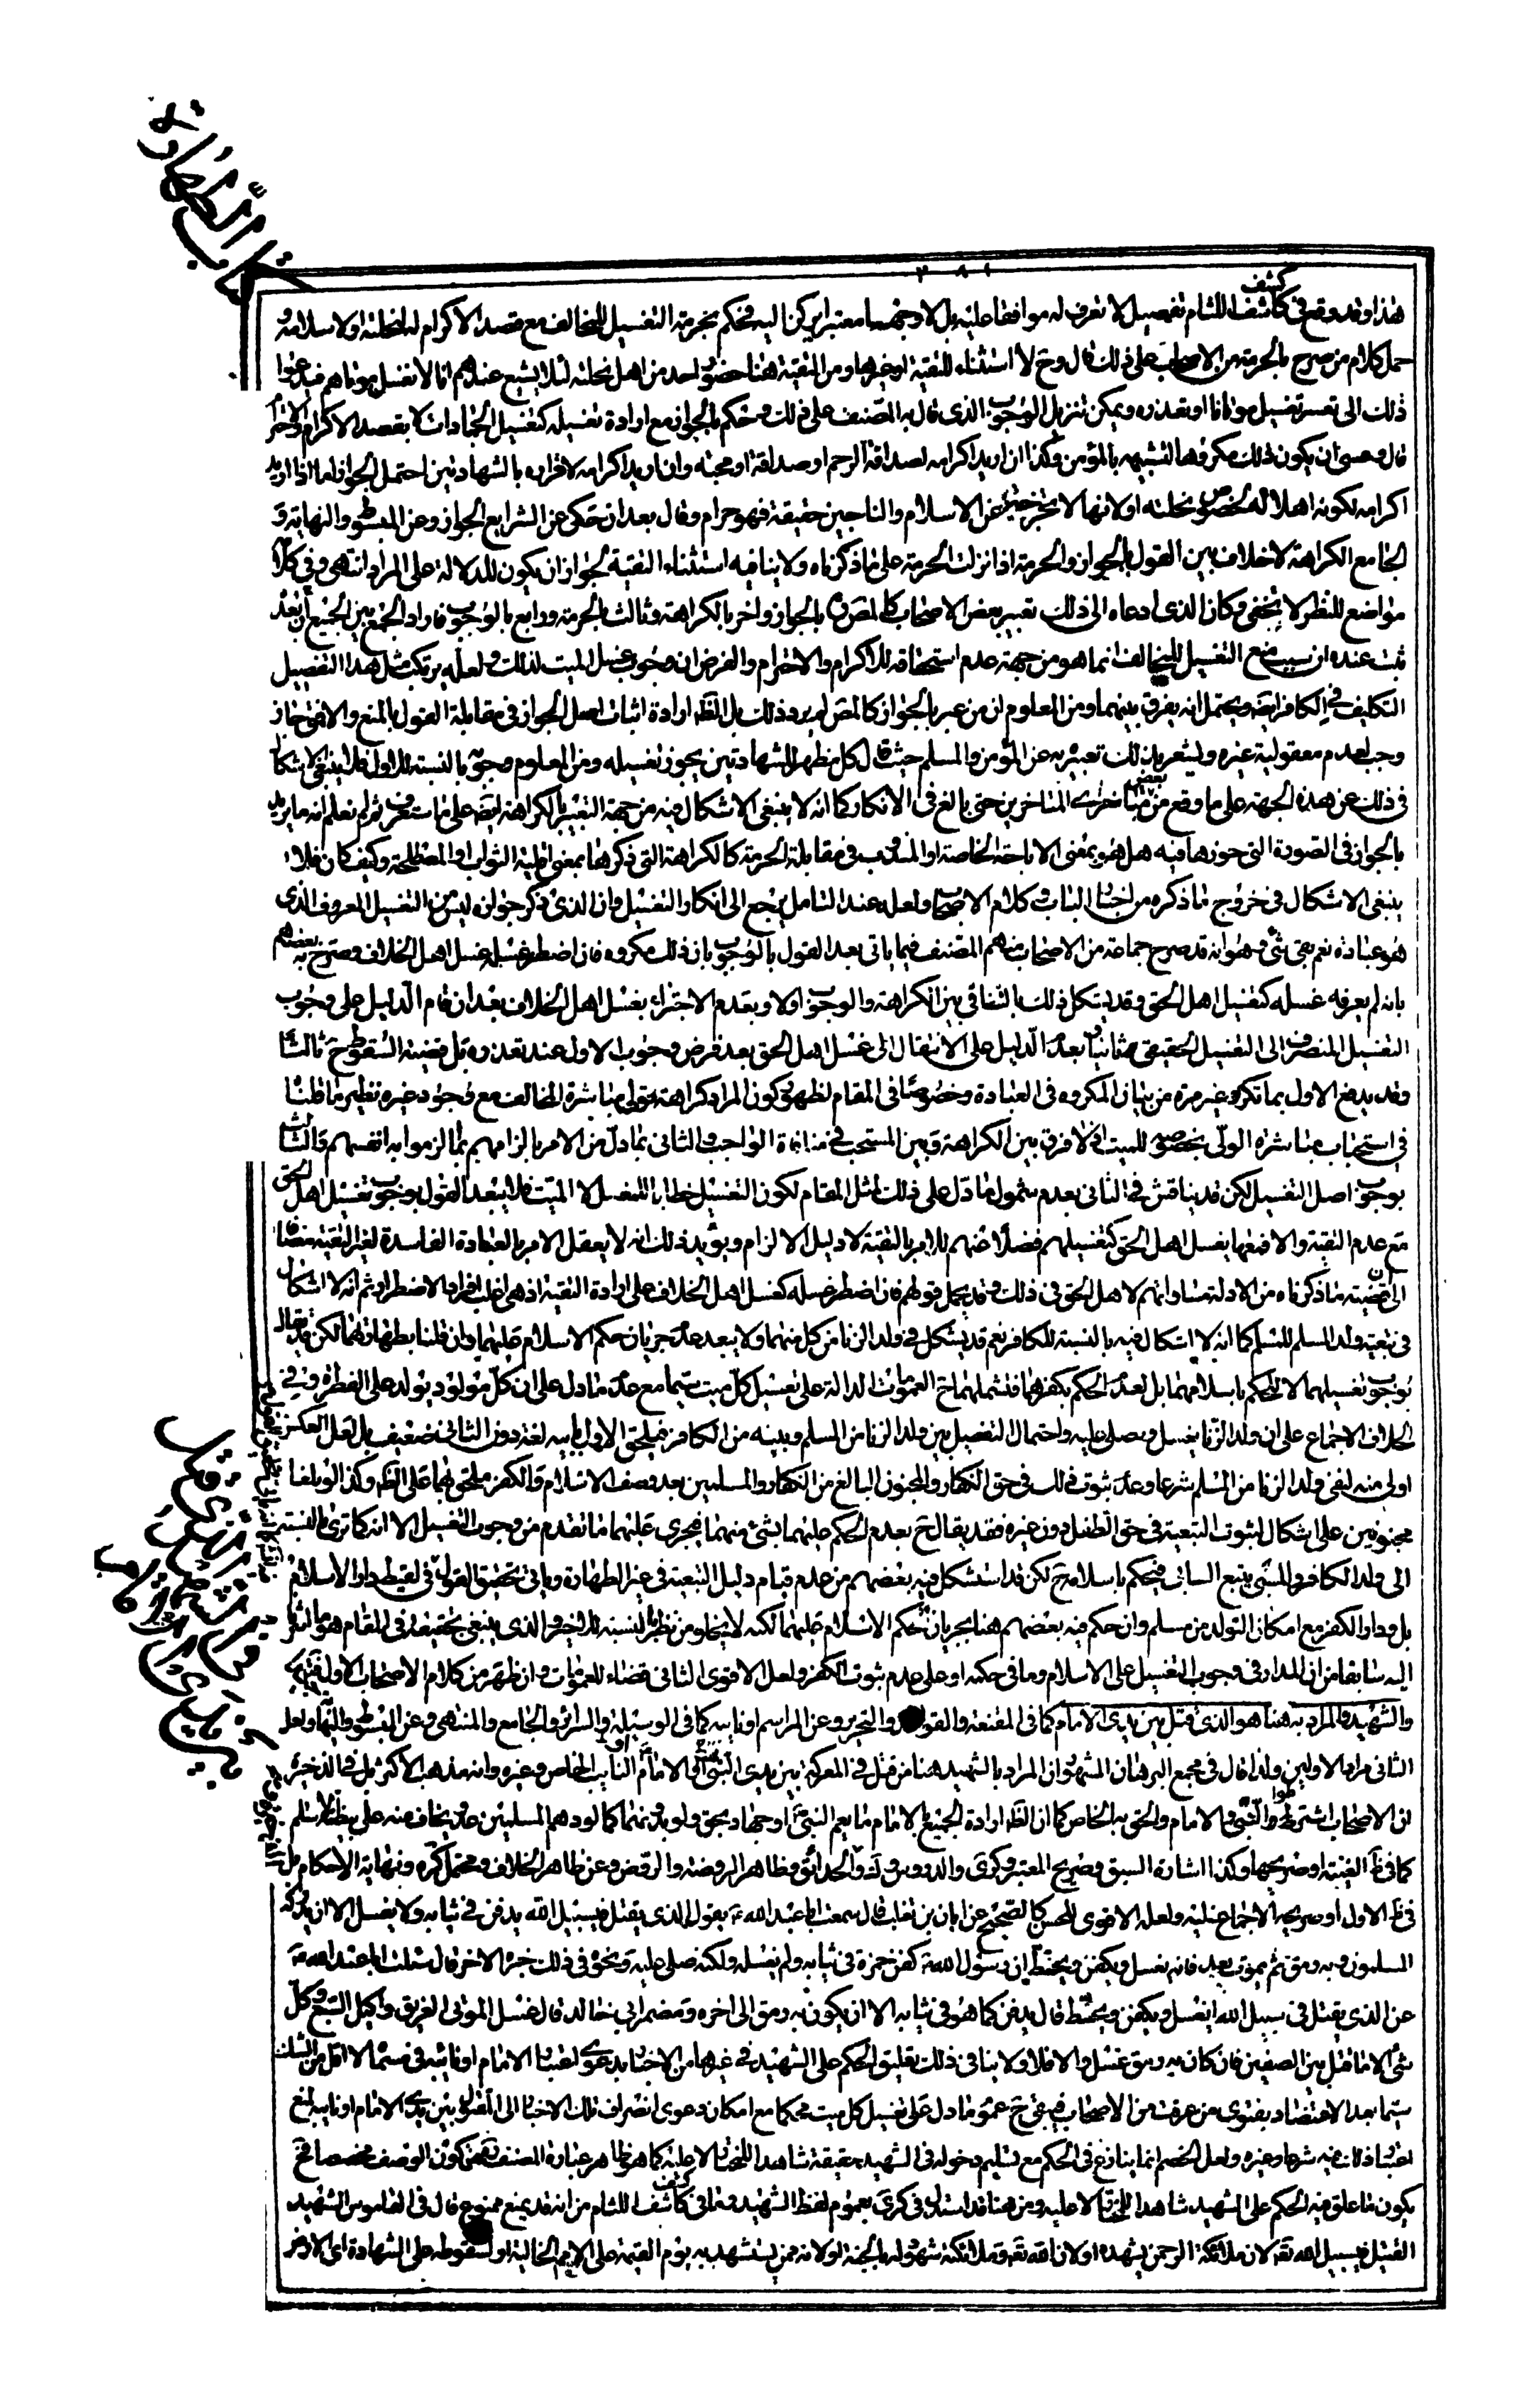 كتاب الطهارة
٣٨١
هذا وقد وقع في كاشف اللثام تفصيل لا نعرف له موافقا عليه بل ولا وجها معتبرا يركن اليه فحكم بحرمة التغسيل للمخالف مع قصد الاكرام له لنحلته او لاسلامه و
حمل كلام من صرح بالحرمة من الاصحاب على ذلك قال وح لا استثناء للتقية او غيرها ومن التقية هنا حضور احد من اهل نحلته لئلا يشيع عندهم انا لا نغسل موتاهم فيدعوا
ذلك الى تعسر تغسيل موتانا او تعذره ويمكن تنزيل الوجوب الذي قال به المصنف على ذلك وحكم بالجواز مع ارادة تغسيله كتغسيل الجمادات لا بقصد الاكرام والاحترام
قال وعسى ان يكون ذلك مكروها لتشبيهه بالمؤمن وكذا ان اريد اكرامه لصداقة الرحم او صداقة او محبة وان اريد اكرامه لاقراره بالشهادتين احتمل الجواز اما اذا اريد
اكرامه لكونه اهلا له لخصوص نحلته او لانها لا تخرجه عن الاسلام والناجين حقيقة فهو حرام وقال بعد ان حكى عن الشرايع الجواز وعن المبسوط والنهاية و
الجامع الكراهة لا خلاف بين القول بالجواز والحرمة اذا نزلت الحرمة على ما ذكرناه ولا ينافيه استثناء التقية لجواز ان يكون للدلالة على المراد انتهى وفي كلامه
مواضع للنظر لا تخفى وكان الذي دعاه الى ذلك تعبير بعض الاصحاب كالمص ره بالجواز واخر بالكراهة وثالث بالحرمة ورابع بالوجوب فاراد الجمع بين الجميع بعد ان
ثبت عنده ان سبب منع التغسيل للمخالف انما هو من جهة عدم استحقاقه للاكرام والاحترام والفرض ان وجوب غسل الميت لذلك ولعله يرتكب مثل هذا التفصيل
التكليف في الكافر ايضا ويحتمل انه يفرق بينهما ومن المعلوم ان من عبر بالجواز كالمص لم يرد ذلك بل الظ ارادة اثبات اصل الجواز في مقابلة القول بالمنع والا فمتى جاز
وجب لعدم معقولية غيره وليشعر بذلك تعبيره عن المؤمن والمسلم حيث قال كل مظهر للشهادتين يجوز تغسيله ومن المعلوم وجوبه بالنسبة للاول فلا ينبغي الاشكال
في ذلك عن هذه الجهة على ما وقع من بعض متأخري المتاخرين حتى بالغ في الانكار كما انه لا ينبغي الاشكال فيه من جهة التعبير بالكراهة ايضا على ما ستعرف ثم لم نعلم انه ما يريد
بالجواز في الصورة التي جوزها فيه هل هو بمعنى الاباحة الخاصة او الندب في مقابلة الحرمة كالكراهة التي ذكرها بمعنى اقلية الثواب او المصطلحة وكيف كان فلا
ينبغي الاشكال في خروج ما ذكره من اخبار الباب وكلام الاصحاب ولعله عند التامل يرجع الى انكار التغسيل وان الذي ذكر جوازه ليس من التغسيل المعروف الذي
هو عبادة نعم بقى شئ وهو انه قد صرح جماعة من الاصحاب منهم المصنف فيما ياتي بعد القول بالوجوب بان ذلك مكروه فان اضطر غسله غسل اهل الخلاف وصرح بعضهم
بانه لم يعرفه غسله كتغسيل اهل الحق وقد يشكل ذلك بالتنافي بين الكراهة والوجوب اولا وبعدم الاجتزاء بغسل اهل الخلاف بعد ان قام الدليل على وجوب
التغسيل المنصرف الى التغسيل الحقيقي ثانيا وبعدم الدليل على الانتقال الى غسل اهل الحق بعد فرض وجوب الاول عند تعذره بل قضيته السقوط ح ثالثا
وقد يدفع الاول بما تكرر غير مرة من بيان المكروه في العبادة وخصوصا في المقام لظهور كون المراد كراهة تولي مباشرة المخالف مع وجود غيره نظير ما قلنا
في استحباب مباشرة الولي بخصوصه للميت اذ لا فرق بين الكراهة وبين المستحب في منافاة الواجب والثاني بما دل من الامر بالزامهم بما الزموا به انفسهم والثالث
بوجوب اصل التغسيل لكن قد يناقش في الثاني بعدم شمول ما دل على ذلك لمثل المقام لكون التغسيل خطابا للمغسل لا الميت فلا يبعد القول بوجوب تغسيل اهل الحق
مع عدم التقية والا فمعها يغسل اهل الحق كتغسيلهم فضلا عنهم للامر بالتقية لا دليل الالزام ويؤيد ذلك انه لا يعقل الامر بالعبادة الفاسدة لغير التقية مضافا
الى ان قضية ما ذكرناه من الادلة مساواتهم لاهل الحق في ذلك وقد يحمل قولهم فان اضطر غسله كغسل اهل الخلاف على ارادة التقية اذ هي اغلب افراد الاضطرار ثم انه لا اشكال
في تبعية ولد المسلم للمسلم كما انه لا اشكال فيه بالنسبة للكافر نعم قد يشكل في ولد الزنا من كل منهما ولا يبعد عدم جريان حكم الاسلام عليهما وان قلنا بطهارتهما لكن قد يقال
بوجوب تغسيلهما لا للحكم باسلامهما بل لعدم الحكم بكفرهما فتشملهما ح العمومات الدالة على تغسيل كل ميت سيما مع عدم ما دل على ان كل مولود يولد على الفطرة وفي
الخلاف الاجماع على ان ولد الزنا يغسل ويصلى عليه واحتمال التفصيل بين ولد الزنا من المسلم وبينه من الكافر فيلحق الاول بابيه لغة دون الثاني ضعيف بل لعل العكس
اولى منه لنفي ولد الزنا من المسلم شرعا وعدم ثبوت ذلك في حق الكفار والمجنون البالغ من الكفار والمسلمين بعد وصف الاسلام والكفر ملحق بهما على الظ وكذا لو بلغا
مجنونين على اشكال لثبوت التبعية في حق الطفل دون غيره فقد يقال ح بعدم الحكم عليهما بشئ منهما فيجري عليهما ما تقدم من وجوب التغسيل الا انه كما ترى بالنسبة
الى ولد الكافر والمسبي يتبع السابي فيحكم باسلامه ح لكن قد استشكل فيه بعضهم من عدم قيام دليل التبعية في غير الطهارة وياتي تحقيق القول في لقيط دار الاسلام
بل ودار الكفر مع امكان التولد من مسلم وان حكم فيه بعضهم هنا بجريان حكم الاسلام عليهما لكنه لا يخلو من نظر بالنسبة للاخير والذي ينبغي تحقيقه في المقام هو ما اشرنا
اليه سابقا من ان المدار في وجوب التغسيل على الاسلام وما في حكمه او على عدم ثبوت الكفر ولعل الاقوى الثاني قضاء للعمومات وان ظهر من كلام الاصحاب الاول
والشهيد والمراد به هنا هو الذي قتل بين يدى الامام كما في المقنعة والقواعد والتحرير وعن المراسم او نايبه كما في الوسيلة والسرائر والجامع والمنتهى وعن المبسوط والنهاية ولعل
الثاني مراد الاولين ولذا قال في مجمع البرهان المشهور ان المراد بالشهيد هنا من قتل في المعركة بين يدى النبي ص او الامام ع او النايب الخاص وغيره وانه مذهب الاكثر بل في الذخيرة
ان الاصحاب اشترطوا النبي او الامام والحق به الخاص كما ان الظ ارادة الجميع بالامام ما يعم النبي ص او جهاد بحق ولو بدونهما كما لو دهم المسلمين عدو يخاف منه على بيضة الاسلام
كما في ظ الغنية او صريحها وكذا اشارة السبق وصريح المعتبر وكرى والدروس ولك والحدائق وظاهر الروضة والروض وعن ظاهر الخلاف ومحتمل كره ونهاية الاحكام بل
في ظ الاول او صريحه الاجماع عليه ولعله الاقوى للحسن كالصحيح عن ابان بن تغلب قال سمعت ابا عبد الله ع يقول الذي يقتل في سبيل الله يدفن في ثيابه ولا يغسل الا ان يدركه
المسلمون وبه رمق ثم يموت بعد فانه يغسل ويكفن ويحنط ان رسول الله ص كفن حمزة في ثيابه ولم يغسله ولكنه صلى عليه ونحوه في ذلك خبره الاخر قال سئلت ابا عبد الله ع
عن الذي يقتل في سبيل الله ايغسل ويكفن ويحنط قال يدفن كما هو في ثيابه الا ان يكون به رمق الى اخره ومضمر ابي خالد قال غسل الموتى الغريق واكيل السبع وكل
شئ الا ما قتل بين الصفين فان كان به رمق غسل والا فلا ولا ينافي ذلك تعليق الحكم على الشهيد في غيرها من الاخبار بدعوى اعتبار الامام او نائبه في مسماه لا اقل من الشك
سيما بعد الاعتضاد بفتوى من عرفت من الاصحاب فيبقى ح عموم ما دل على تغسيل كل ميت محكما مع امكان دعوى انصراف تلك الاخبار الى المقتول بين يدي الامام او نايبه لمنع
اعتبار ذلك فيه شرعا وغيره ولعل الخصم انما ينازع في الحكم مع تسليم دخوله في الشهيد حقيقة شاهدا للمختار لا عليه كما هو ظاهر عبارة المصنف فمن كون الوصف مخصصا فح
يكون ما علق فيه الحكم على الشهيد شاهدا للمختار لا عليه ومن هنا قد استدل في كرى بعموم لفظ الشهيد وما في كاشف اللثام من انه قد يمنع ممنوع قال في القاموس الشهيد
القتيل في سبيل الله تعالى لان ملائكة الرحمن تشهده او لان الله تعالى وملائكته شهود له بالجنة او لانه ممن يستشهد به يوم القيمة على الامم الخالية او لسقوطه على الشهادة اي الارض